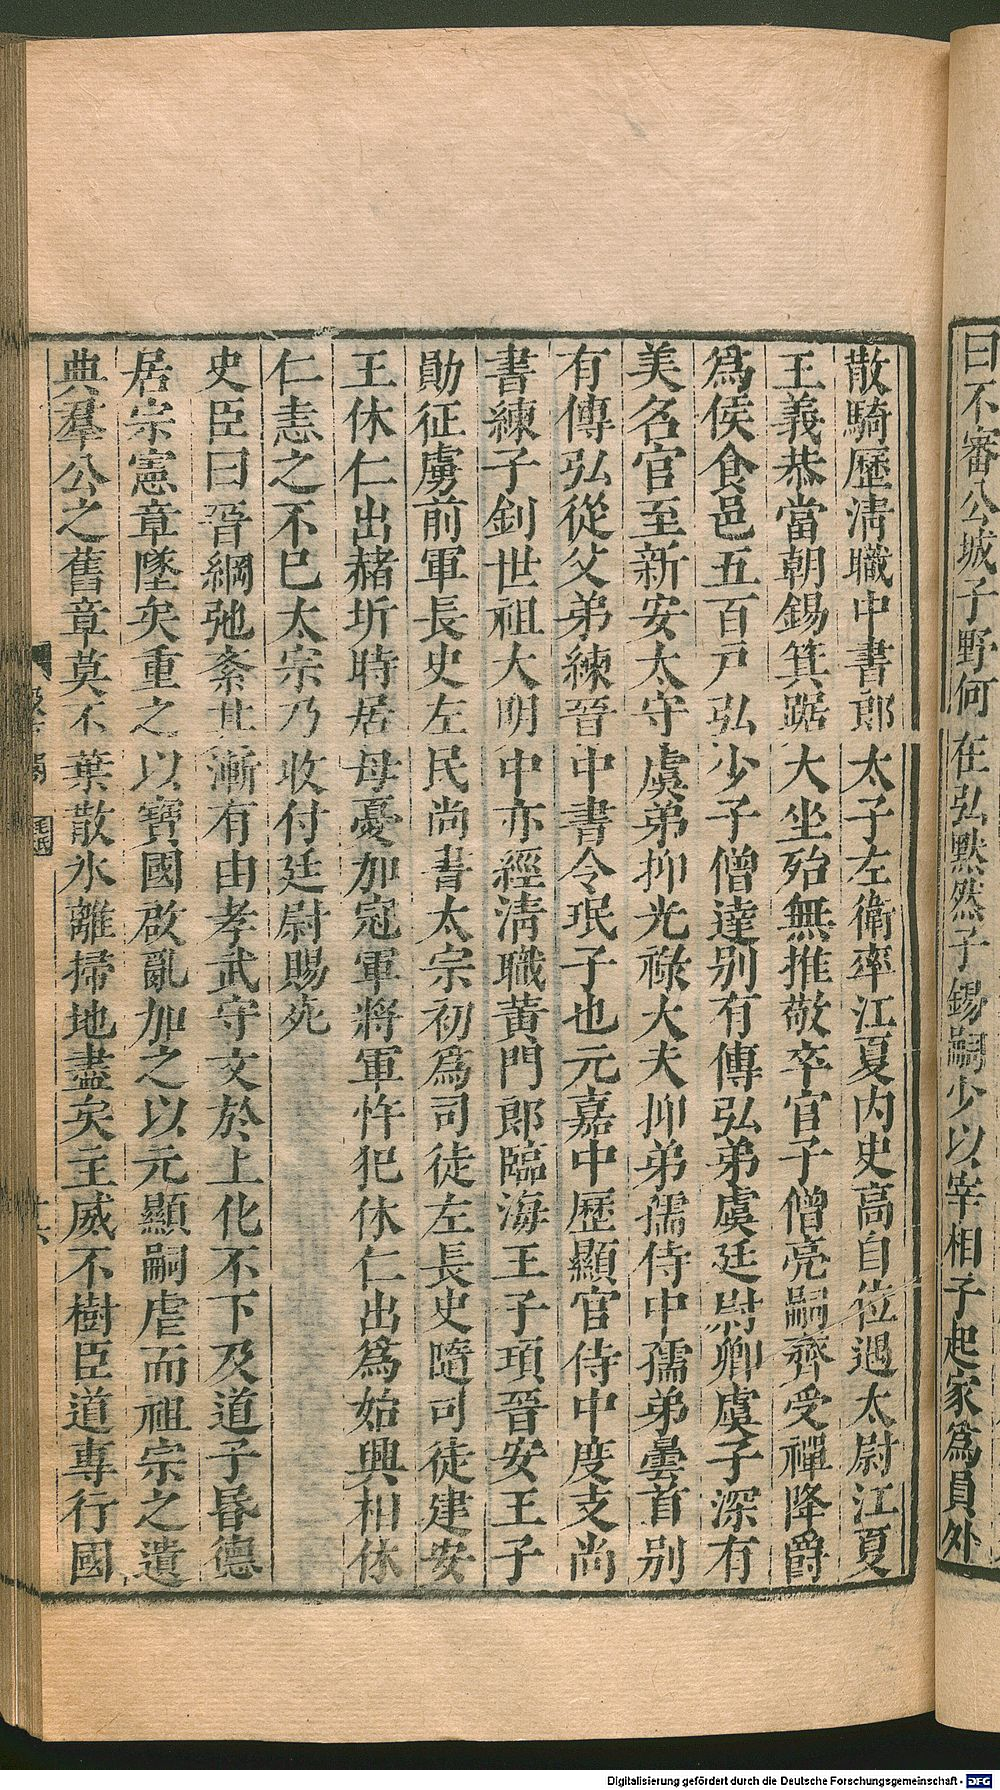 曰不審公城子野何在弘黙然子錫嗣少以宰相子起家爲員外
散騎歷淸職中書郎太子左衛率江夏內史高自位遇太尉江夏
王義恭當朝錫箕踞大坐殆無推敬卒官子僧亮嗣齊受禪降爵
爲侯食邑五百戸弘少子僧達别有傳弘弟虞廷尉卿虞子深有
美名官至新安太守虞弟抑光祿大夫抑弟孺侍中孺弟曇首别
有傳弘從父弟練晉中書令珉子也元嘉中歷顯官侍中度支尚
書練子釗世祖大明中亦經淸職黃門郎臨海王子頊晉安王子
勛征虜前軍長史左民尚書太宗初爲司徒左長史隨司徒建安
王休仁出赭圻時居母憂加冠軍將軍忤犯休仁出爲始興相休
仁恚之不已太宗乃收付廷尉賜死
史臣曰晉綱弛紊其漸有由孝武守文於上化不下及道子昬德
居宗憲章墜矣重之以寶國啟亂加之以元顯嗣虐而祖宗之遺
典羣公之舊章莫不葉散氷離掃地盡矣主威不樹臣道專行國
Digitalisierung gefördert durch die Deutsche Forschungsgemeinschaft - DFG